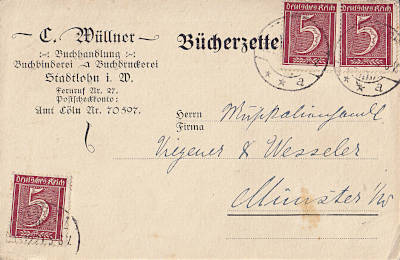 C. Wüllner
Buchhandlung
Buchbinderei Buchdruckerei
Stadtlohn i. W.
Fernruf Nr. 27.
Postscheckkonto:
Amt Cöln Nr. 70597.
Bücherzettel
Deutsches Reich
5
Deutsches Reich
5
a
Herrn
Firma
Musikalienhandl.
& Wesseler
Münster i/W
Deutsches Reich
5